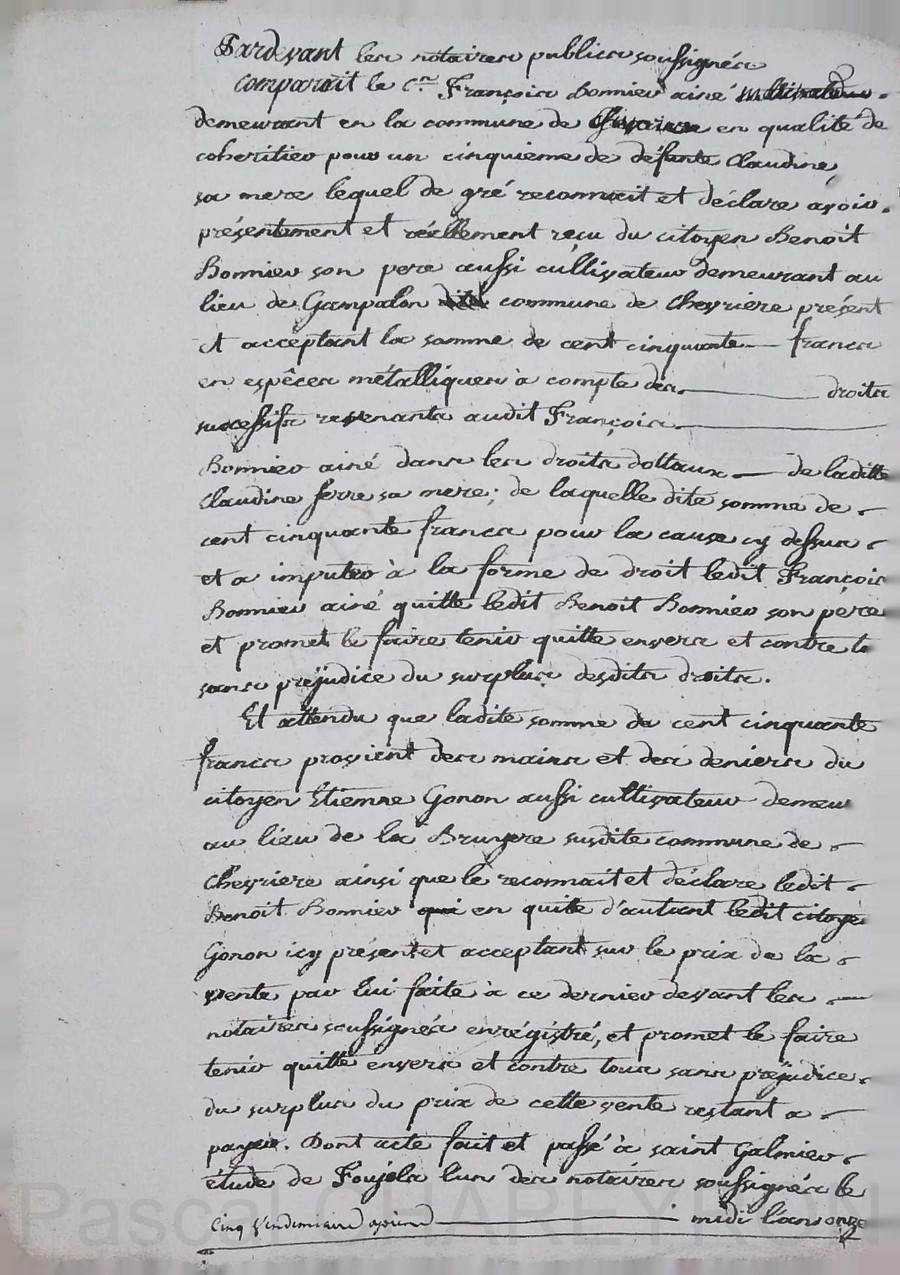 Pardevant les notaires publics soussignés
comparoit le Cen François Bonnier ainé cultivateur
demeurant en la commune de en qualité de
coheritier pour un cinquieme de défunte Claudine
sa mere lequel de gré reconnait et déclare avoir
présentement et réellement reçu du citoyen Benoit
Bonnier son pere aussi cultivateur demeurant au
lieu de Gampalon commune de Chevriere présent
et acceptant la somme de cent cinquante francs
en espèces métalliques à compte des droits
successifs revenants audit François
Bonnier ainé dans les droits dottaux de laditte
Claudine ferre sa mere; de laquelle dite somme de
cent cinquante francs pour la cause cy dessus
et a imputer à la forme de droit ledit François
Bonnier ainé quitte ledit Benoit Bonnier son pere
et promet le faire tenir quitte envers et contre to
sans préjudice du surplus desdits droits.
Et attendu que ladite somme de cent cinquante
francs provient des mains et des deniers du
citoyen Etienne Gonon aussi cultivateur demeur
au lieu de la Bruyere susdite commune de
Chevriere ainsi que le reconnait et déclare ledit
Benoit Bonnier qui en quitte d'autant ledit citoye
Gonon icy présent et acceptant sur le prix de la
vente par lui faite à ce dernier devant les
notaires soussignés enrégistré, et promet le faire
tenir quitte envers et contre tous sans préjudice
du surplus du prix de cette vente restant a
payer. Dont acte fait et passé à saint Galmier
étude de Foujols lun des notaires soussignés le
Cinq Vendemiaire apres midi l'an onze
Pascal CHAREYRON